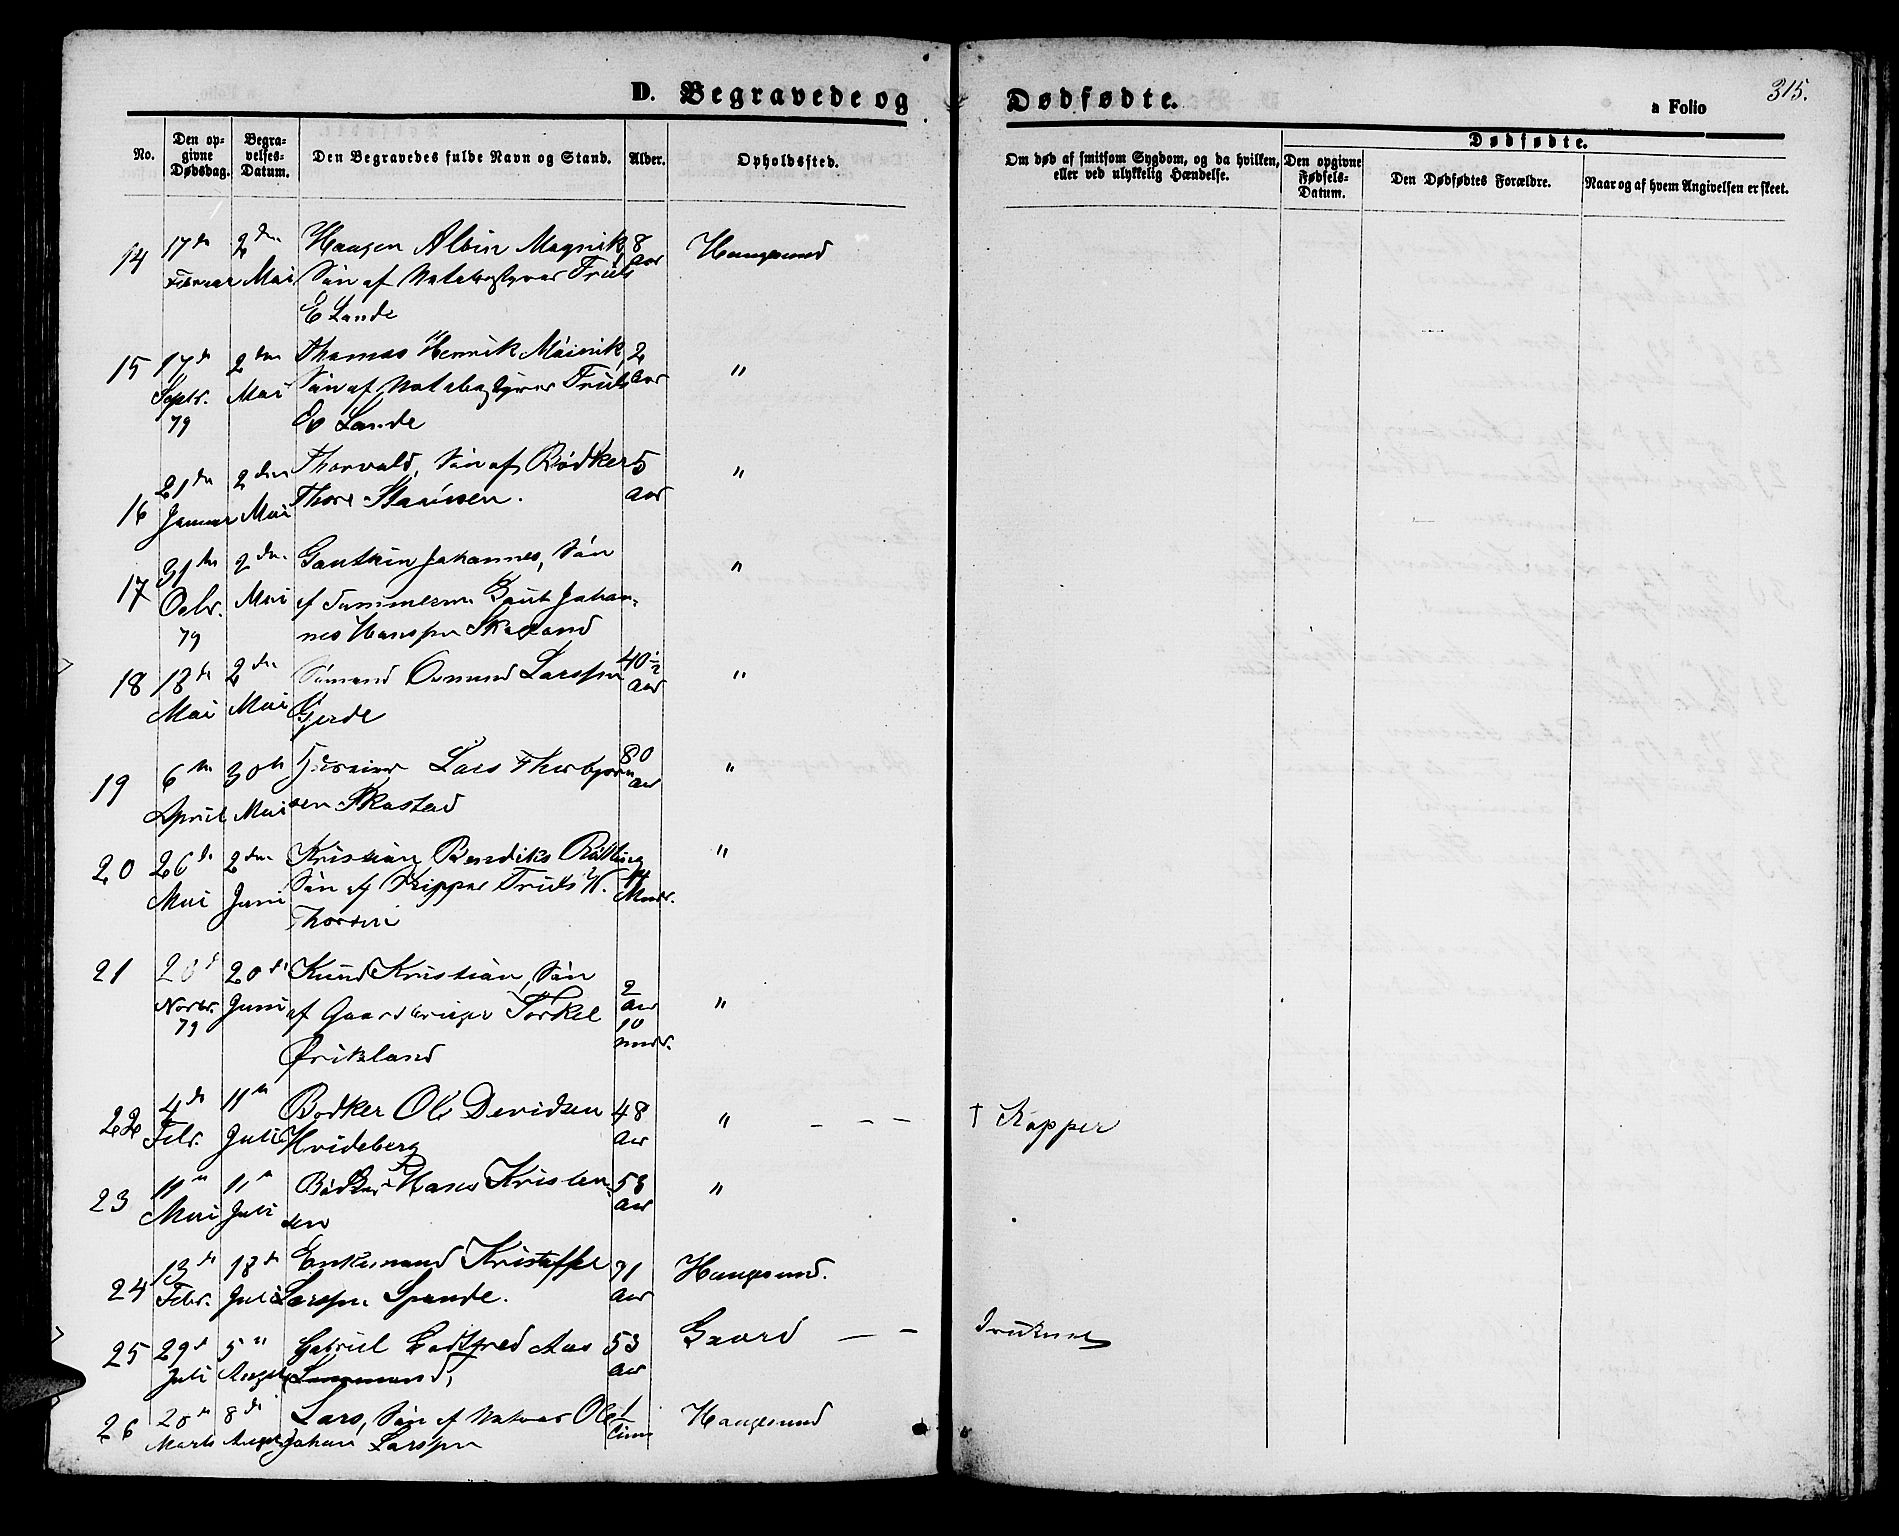 D. Begravede og Dødfødte.
a Folio 315.
No.
Den opgivne Dødsdag.
Begravelses-Datum.
Den Begravedes fulde Navn og Stand.
Alder.
Opholdssted.
Om død af smitsom Sygdom, og da hvilken, eller ved ulykkelig Hændelse.
Dødfødte.
Den opgivne Fødsels-Datum.
Den Dødfødtes Forældre.
Naar og af hvem Angivelsen er skeet.
14 17de 2den Haagen Albin Magnik, 8 Haugesund
Februar Mai Søn af Truls Aar
E Lande
15 17de 2den Thomas Henrik 2 "
Septr. Mai Søn af Truls Aar
79 Lande
16 21de 2den Thorvald, Søn af Bødker 5 "
Januar Mai Thore Aar
17 31te 2den Johannes, Søn "
Octbr. Mai af Tømmerm Gaut Johan-
79 nes Hanssen
18 13de 2den Sømand Osmund Larssen 40½ "
Mai Mai Gjerde Aar
19 6te 30te Lars Thorbjørn 80 "
April Mai sen Skastad Aar
20 26de 2den Kristian Bendiks "
Mai Juni Søn af Skipper Truls W. 14 Mndr.
Thorsen
21 20de 20de Knud Kristian, Søn 2 "
Novbr. Juni af Gaardbruger Torkel Aar
79 10
Ørikland mndr.
22 4de 11te Bødker Ole Davidsen 48 " – – – † Kopper
Febr. Juli Hvideberg Aar
23 11te 11te Bødker Hans Kristen- 53 "
Mai Juli sen Aar
24 13de 18de Enkemand Kristoffer 71 Haugesund.
Febr. Juli Larssen Spande. Aar
25 29de 5te Gabriel Godtfred Aas 53 Gaard – – Druknet
Juli August Aar
26 20de 8de Lars, Søn af Ole 1 Haugesund
Marts August Johan Larssen Time